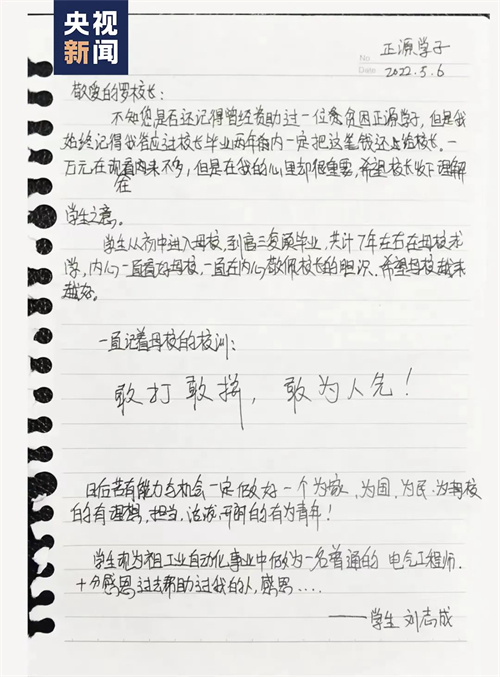 央视
新闻
正源学子
No.
Date 2022.5.6
敬爱的罗校长：
不知您是否还记得曾经资助过一位贫困正源学子，但是我
始终记得我答应过校长毕业两年内一定把这笔钱还上给校长。一
万元在现看来不多，但是在我的心里却很重要，希望校长收下理解
在
学生之意。
学生从初中进入母校，到高三复顾毕业，共计7年左右在母校求
学，内心一直看好母校，一直在内心敬佩校长的胆识，希望母校越来
越好。
一直记着母校的校训：
敢打敢拼，敢为人先！
日后若有能力与机会一定做好一个为家，为国，为民，为母校
的有理想，担当，活泼开朗的有为青年！
学生现为祖工业自动化事业中做为一名普通的电气工程师.
十分感恩过去帮助过我的人，感恩....
——学生 刘志成